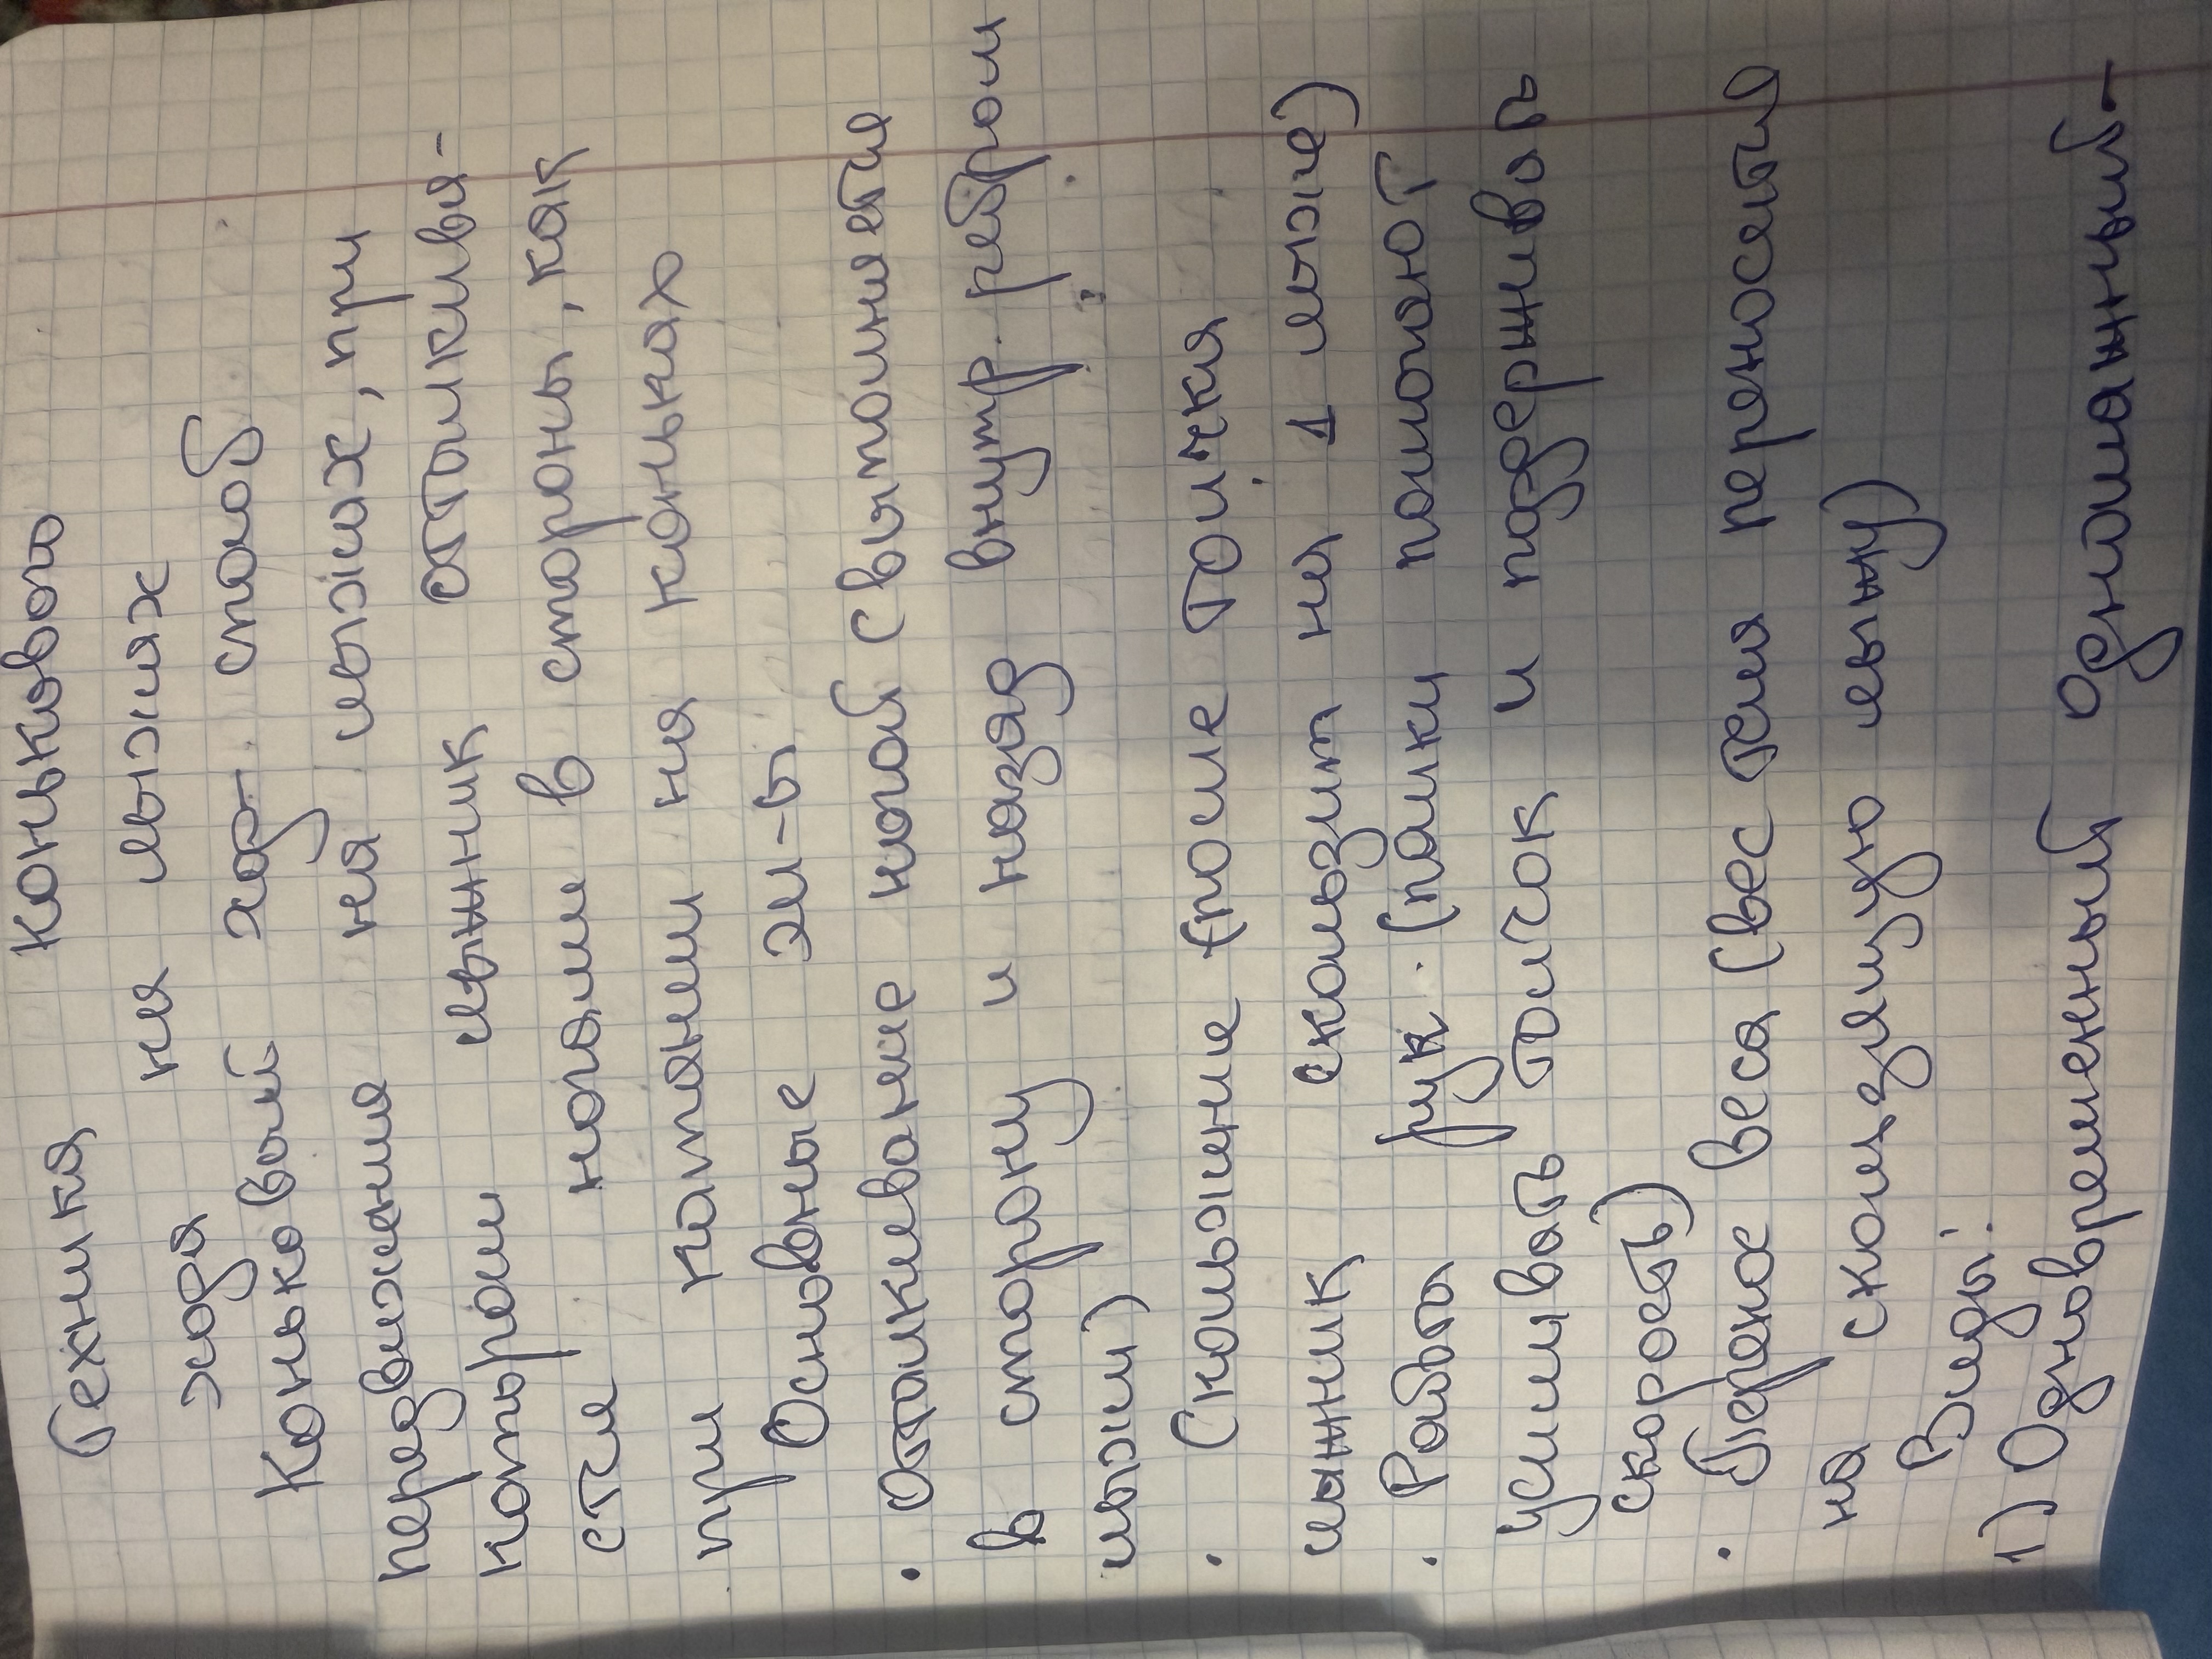 Техника конькового
хода на лыжах
Коньковый ход - способ
передвижения на лыжах, при
котором лыжник отталкива-
ется ногами в стороны, как
при катании на коньках
Основные эл-ы
• Отталкивание ногой (выполняется
в сторону и назад внутр. ребром
лыжи)
• Скольжение (после толчка
лыжник скользит на 1 лыже)
• Работа рук. (палки помогают
усиливать толчок и поддерживать
скорость)
• Перенос веса (вес тела переносится
на скользящую лыжу)
Виды:
1) Одновременный одношажный -